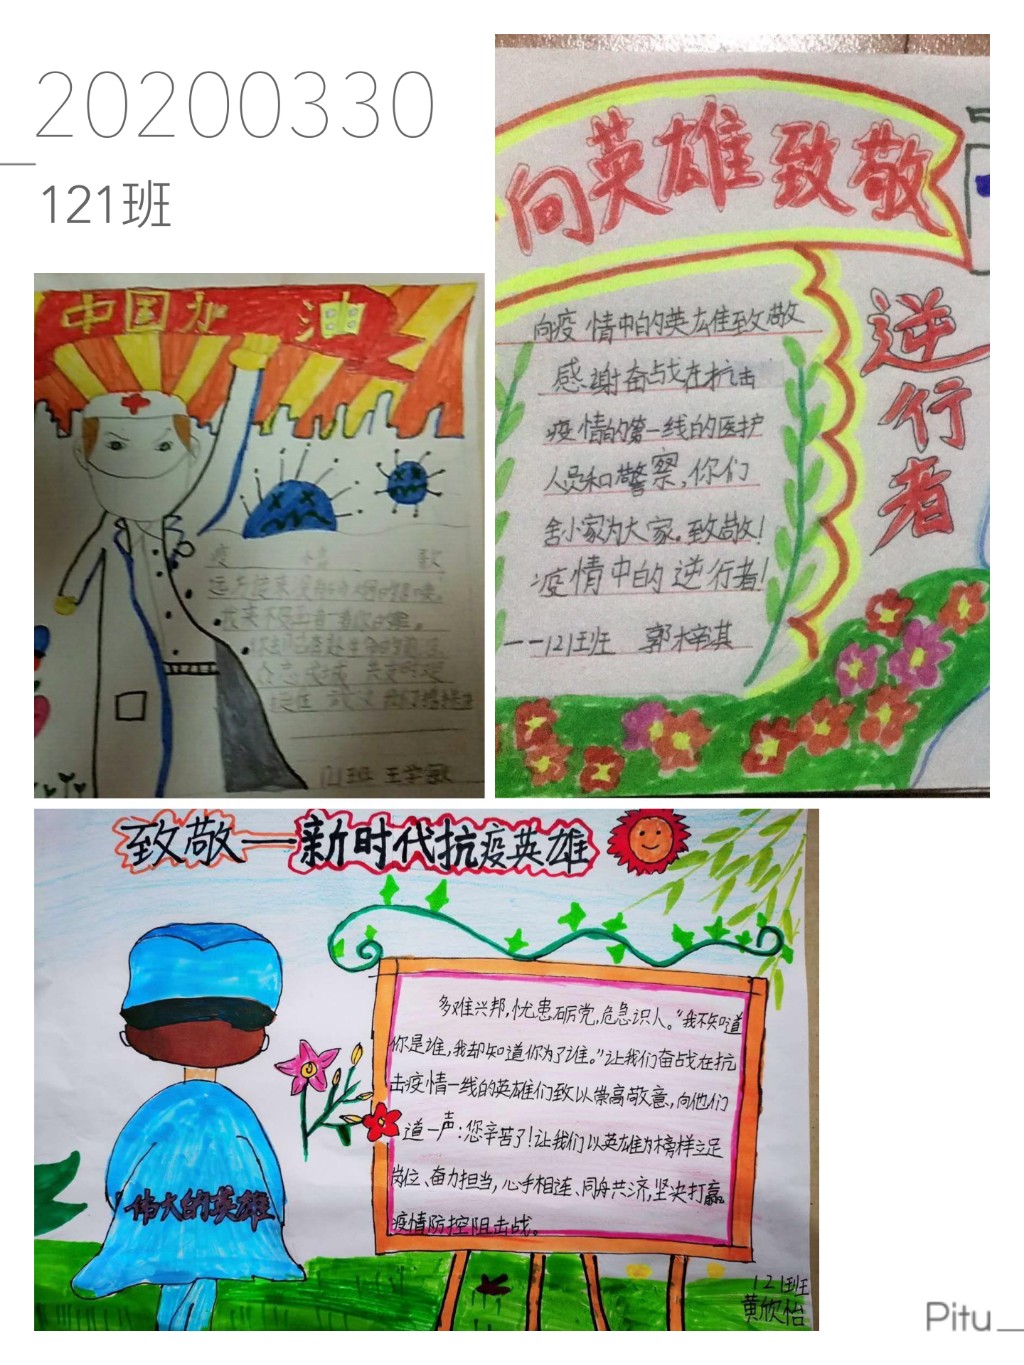 20200330
121班
向英雄致敬
逆行者
向疫情中的英雄致敬
感谢奋战在抗击
疫情的第一线的医护
人员和警察,你们
舍小家为大家。致敬!
疫情中的逆行者!
——121班 郭梓淇
中国加油
疫情
121班 王学敏
致敬——新时代抗疫英雄
多难兴邦,忧患砺党,危急识人。“我不知道
你是谁,我却知道你为了谁。”让我们奋战在抗
击疫情一线的英雄们致以崇高敬意,向他们
道一声:您辛苦了!让我们以英雄为榜样立足
岗位、奋力担当,心手相连、同舟共济,坚决打赢
疫情防控阻击战。
伟大的英雄
121班
黄欣怡
Pitu